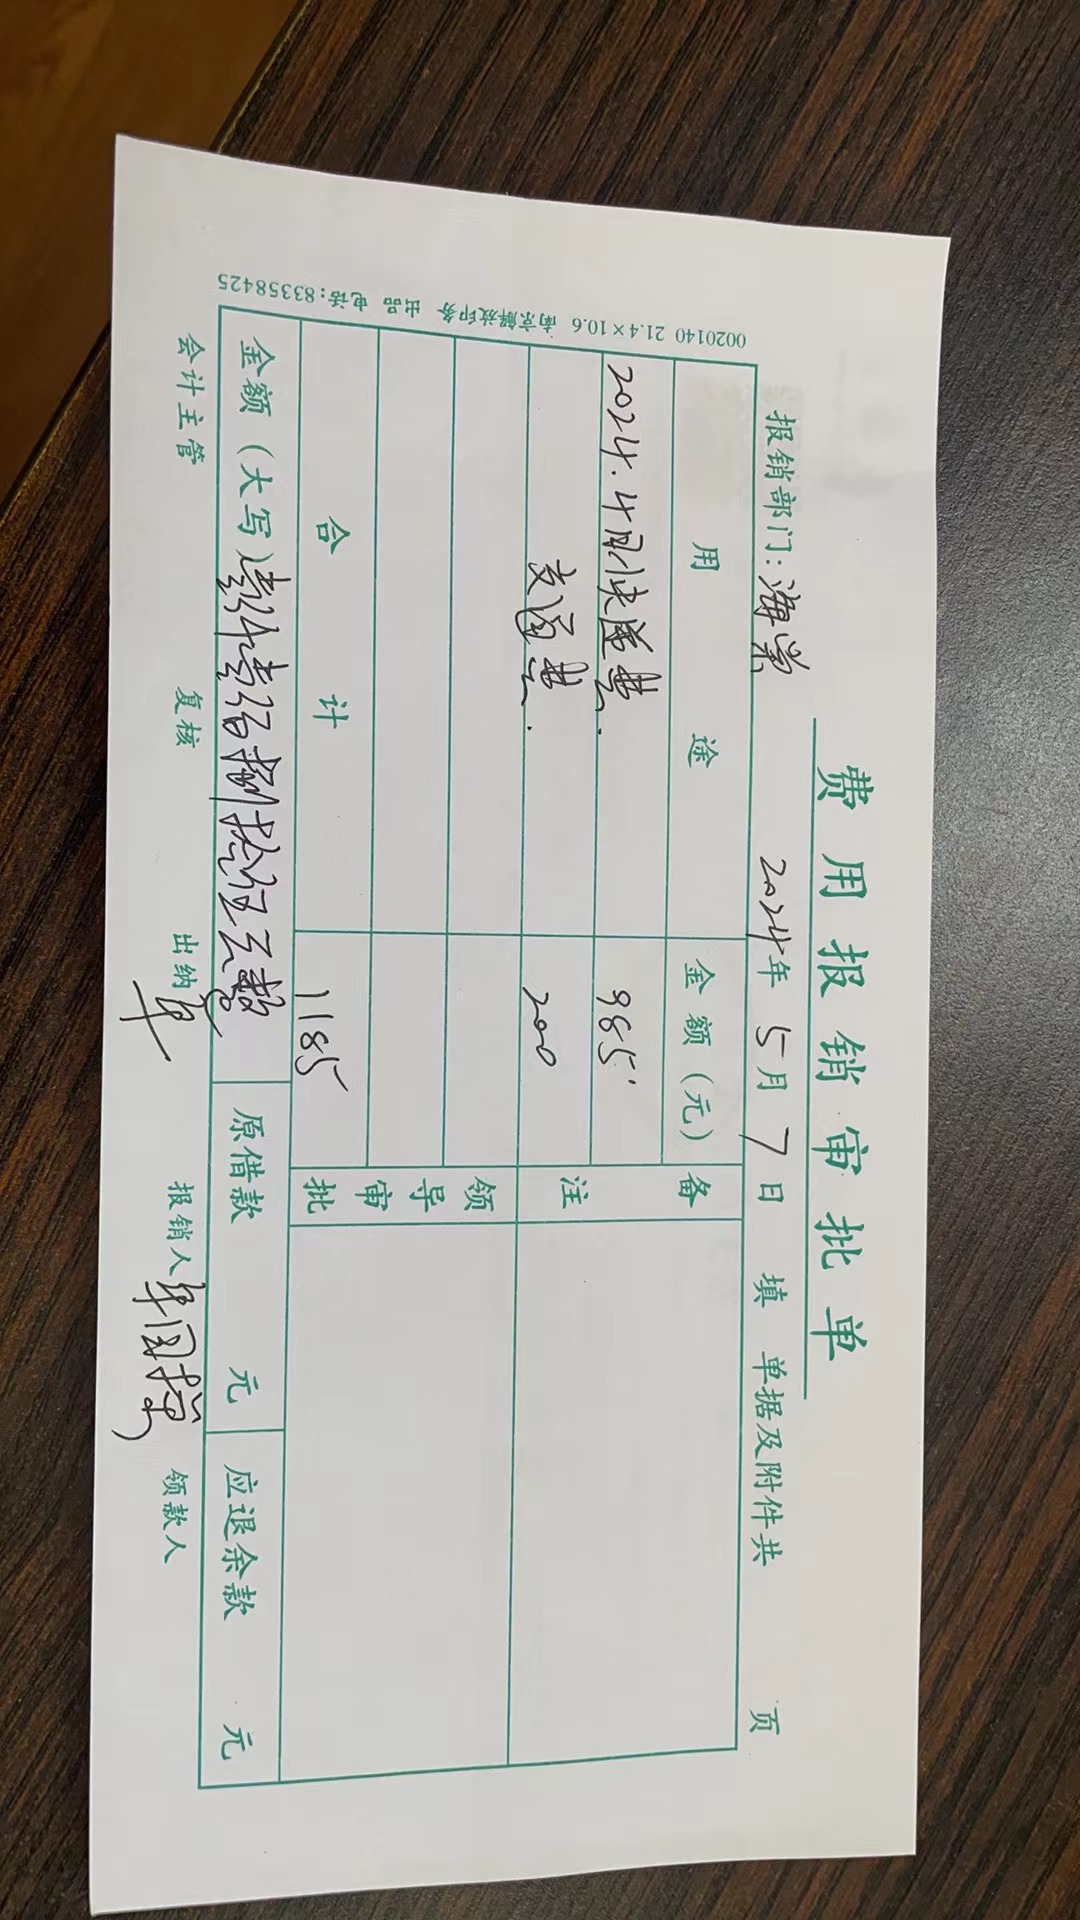 费用报销审批单
报销部门：海棠 2024年5月7日填 单据及附件共 页
用途 金额（元） 备注
2024.4月快递费. 985
交通费. 200
领导审批
合计 1185
金额（大写）壹仟壹佰捌拾伍元整 原借款 元 应退余款 元
会计主管 复核 出纳 年 报销人 领款人
0020140 21.4×10.6 南京解放印务 出品 电话：83358425